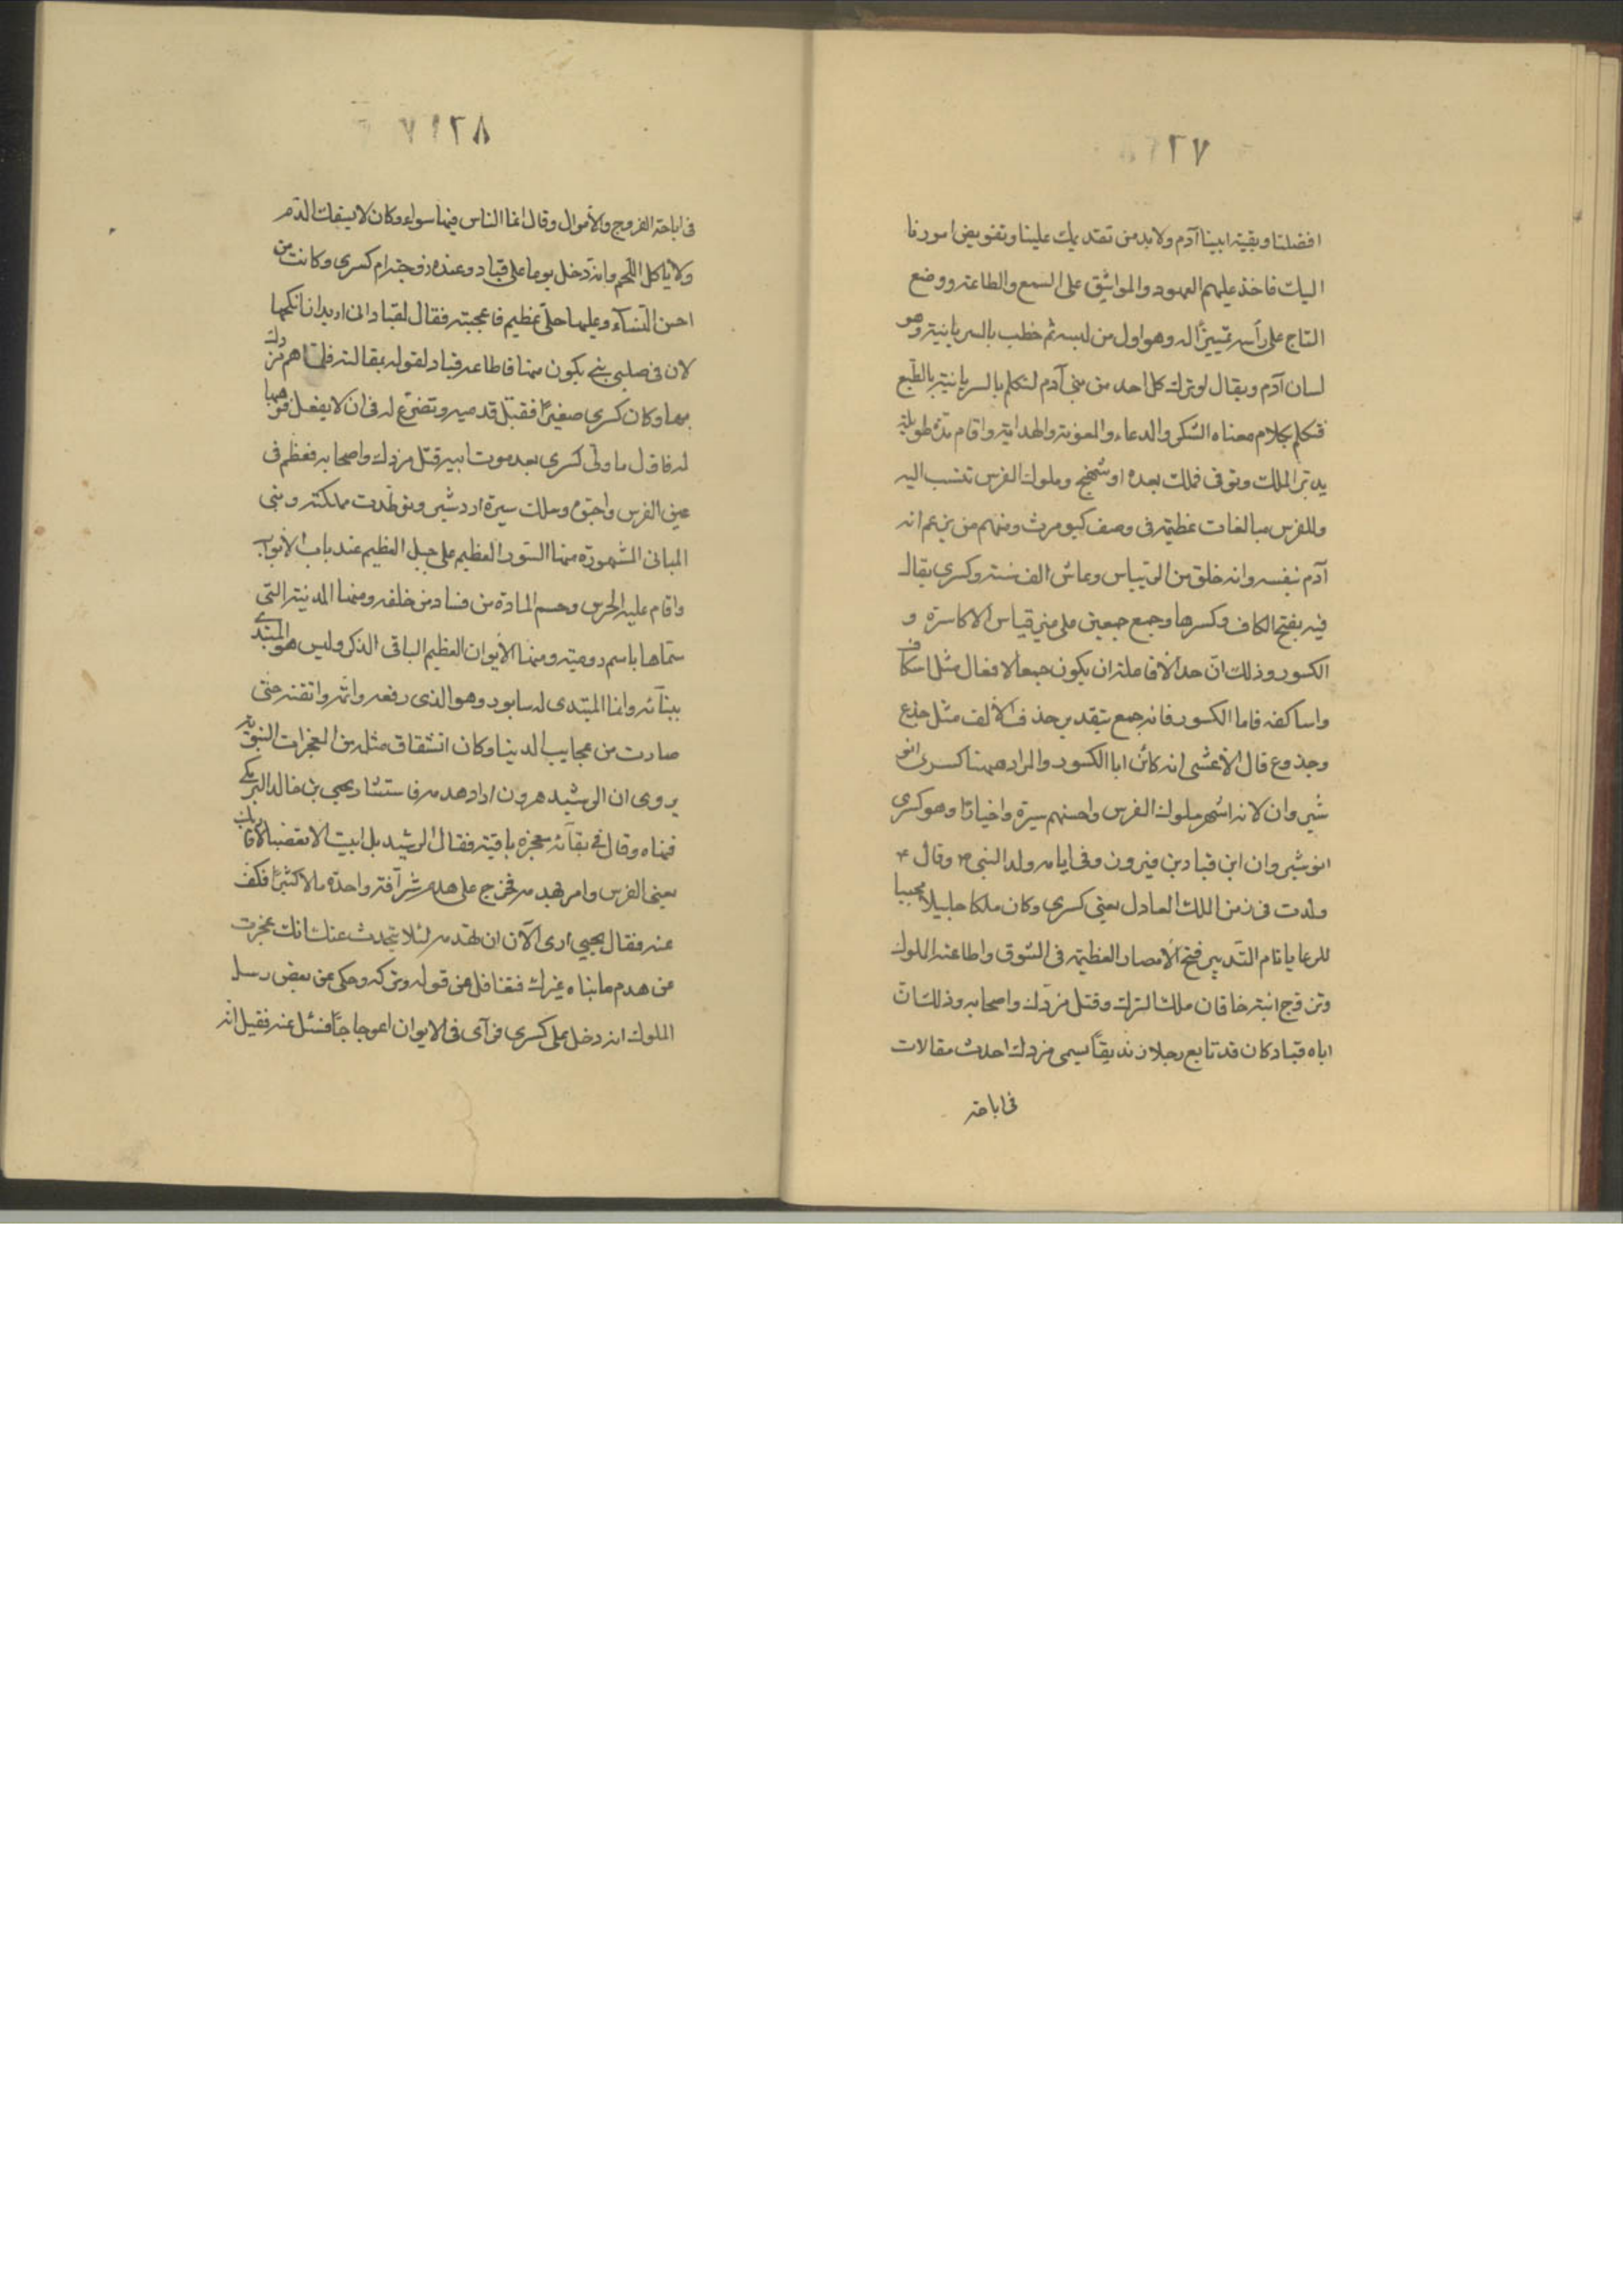 ٢٧
افضلنا وبقية ابينا آدم ولابد من تقديمك علينا وتفويض امورنا
اليك فاخذ عليهم العهود والمواثيق على السمع والطاعة ووضع
التاج على رأسه تمييزًا له وهو اول من لبسه ثم خطب بالسريانية وهو
لسان آدم ويقال لو ترك كل احد من بنى آدم لتكلم بالسريانية بالطبع
فتكلم بكلام معناه الشكر والدعاء والمعونة والهداية واقام مدة طويلة
يدبّر الملك وتوفى فملك بعده اوشهنج وملوك الفرس تنتسب اليه
وللفرس مبالغات عظيمة فى وصف كيومرث ومنهم من يزعم انه
آدم نفسه وانه خلق من الريباس وعاش الف سنة وكسرى يقال
فيه بفتح الكاف وكسرها وجمع جمعين على غير قياس الاكاسرة و
الكسور وذلك انّ حد الافاعلة ان يكون جمعا لافعال مثل اسكاف
واساكفه فاما الكسور فانه جمع بتقدير حذف الألف مثل جذع
وجذوع قال الأعشى انه كان ابا الكسور والمراد ههنا كسرى انو
شيروان لانه اشهر ملوك الفرس واحسنهم سيرة واخبارًا وهو كسرى
انوشيروان ابن قباد بن فيرون وفى ايامه ولد النبى ص وقال ع
ولدت فى زمن الملك العادل يعنى كسرى وكان ملكا جليلا محببا
للرعايا تام التّدبير فتح الأمصار العظيمة فى الشوق واطاعته الملوك
وتزوج ابنة خاقان ملك الترك وقتل مزدك واصحابه وذلك انّ
اباه قباد كان قد تابع رجلا زنديقًا يسمى مزدك احدث مقالات
فى اباحة
٢٨
فى اباحة الفروج والأموال وقال انما الناس فيها سواء وكان لا يسفك الدّم
ولا يأكل اللّحم وانه دخل يوما على قباد وعنده زوجته ام كسرى وكانت من
احسن النّساء وعليها حلى عظيم فاعجبته فقال لقباد انى اريد ان انكحها
لان فى صلبى نبى يكون منها فاطاعه قباد لقوله بمقالته فلمّا هم مزدك
بها وكان كسرى صغيرًا فقبّل قدميه وتضرّع له فى ان لا يفعل فوهبها
له فاول ما ولى كسرى بعد موت ابيه قتل مزدك واصحابه فعظم فى
عين الفرس واحبّوه وملك سيرة اردشير وتوطدت مملكته وبنى
المبانى المشهورة منها السّور العظيم على جبل العظيم عند باب الأبواب
واقام عليه الحرس وحسم المادة من فساد من خلفه ومنها المدينة التى
سمّاها باسم رومية ومنها الأيوان العظيم الباقى الذكر وليس هو المبتدى
ببنآئه وانما المبتدى له سابور وهو الذى رفعه واتمّه واتقنه حتى
صارت من عجايب الدنيا وكان انشقاق مثله من المعجزات النبوّية
يروى ان الرشيد هرون اراد هدمه فاستشار يحيى بن خالد البرمكى
فنهاه وقال فى بقآئه معجزة باقية فقال الرشيد بل ابيت الا تعصبا لآبائك
يعنى الفرس وامر بهدمه فخرج على هدم شرآفة واحدة مالا كثيرًا فكف
عنه فقال يحيى ارى الآن ان تهدمه لئلا يتحدث عنك انك عجزت
عن هدم ما بناه غيرك فتغافل عن قوله وتركه وحكى عن بعض رسل
الملوك انه دخل على كسرى فرآى فى الايوان اعوجاجًا فسئل عنه فقيل انه